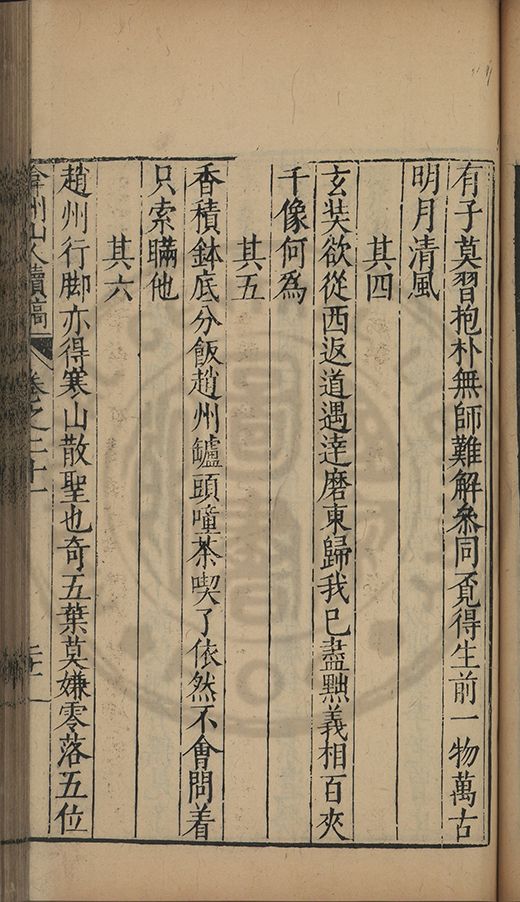 有子莫習抱朴無師難解叅同覔得生前一物萬古
明月清風
其四
玄奘欲從西返道遇達磨東歸我已盡黜義相百夾
千像何為
其五
香積鉢底分飯趙州罏頭噇茶喫了依然不會問着
只索瞞他
其六
趙州行脚亦得寒山散聖也奇五葉莫嫌零落五位
弇州山人續稿 卷之二十一